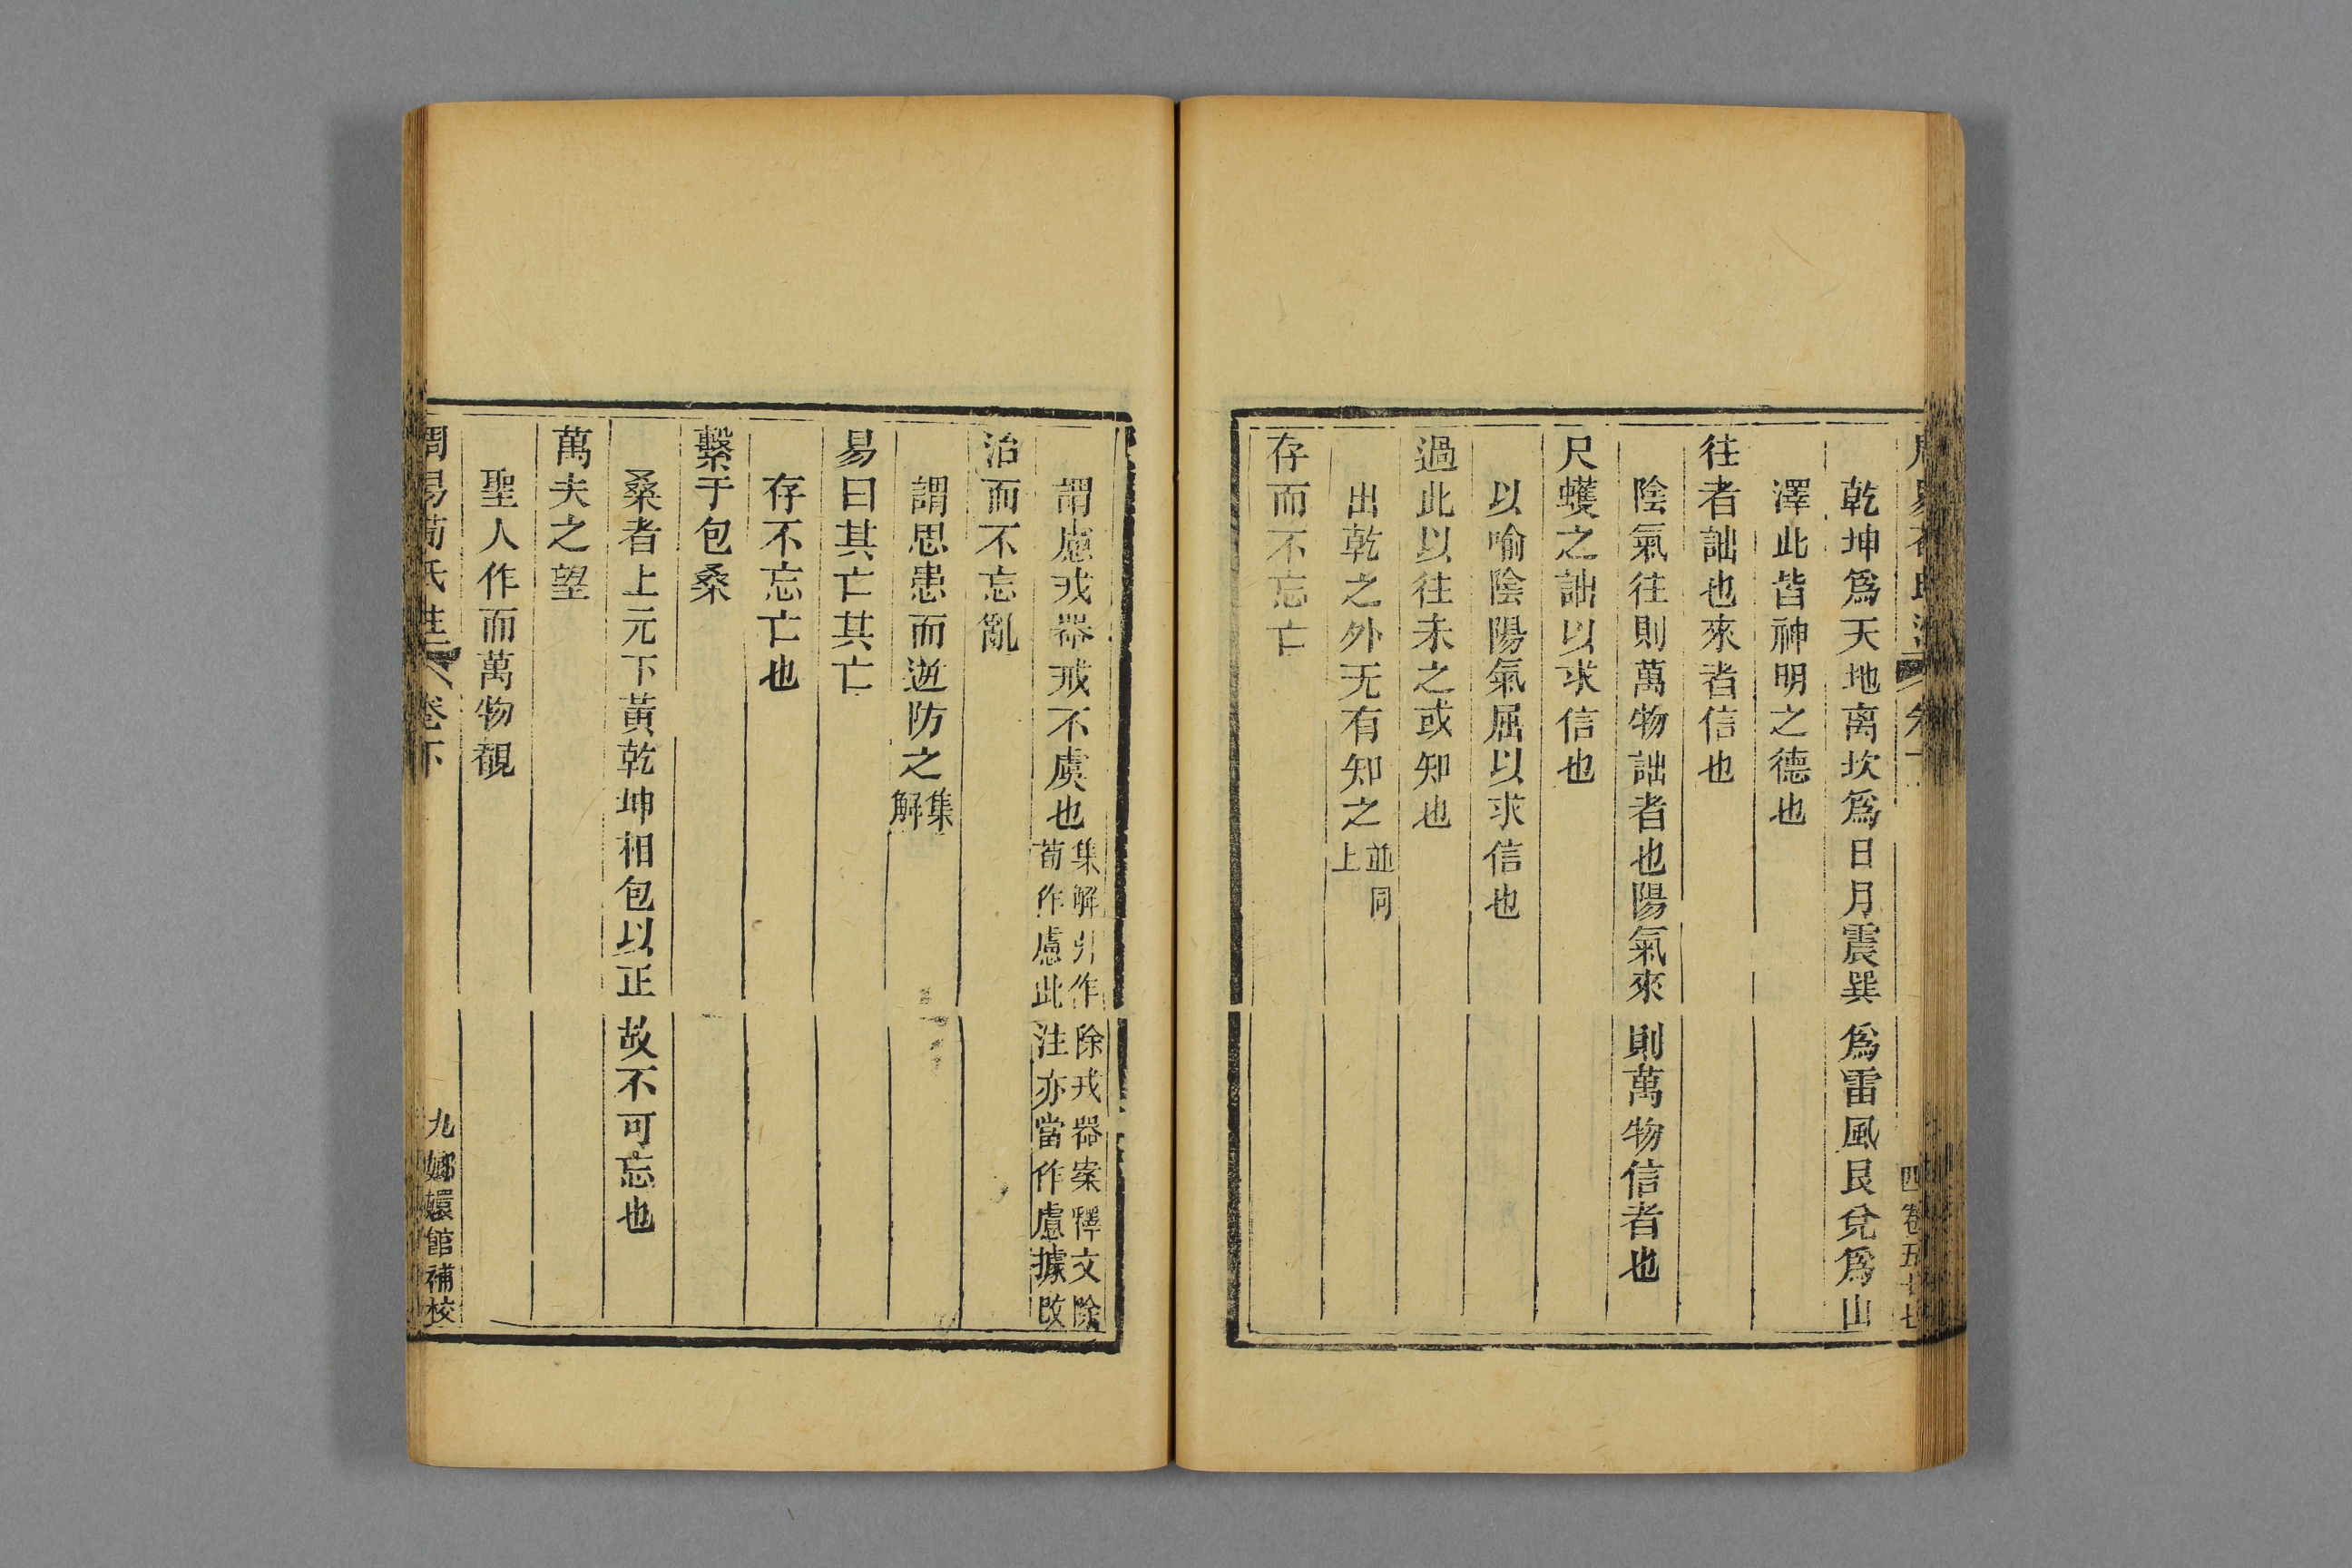 乾坤爲天地离坎爲日月震巽爲雷風艮兌爲山
澤此皆神明之德也
往者詘也來者信也
陰氣往則萬物詘者也陽氣來則萬物信者也
尺蠖之詘以求信也
以喻陰陽氣屈以求信也
過此以往未之或知也
出乾之外无有知之
並同
上
存而不忘亡
謂慮戎器戒不虞也
集解引作除戎器案釋文除
荀作慮此注亦當作慮據改
治而不忘亂
謂思患而逆防之
集
解
易曰其亡其亡
存不忘亡也
繫于包桑
桑者上元下黃乾坤相包以正故不可忘也
萬夫之望
聖人作而萬物覩
周易荀氏注 卷下
九 嫏嬛館補校